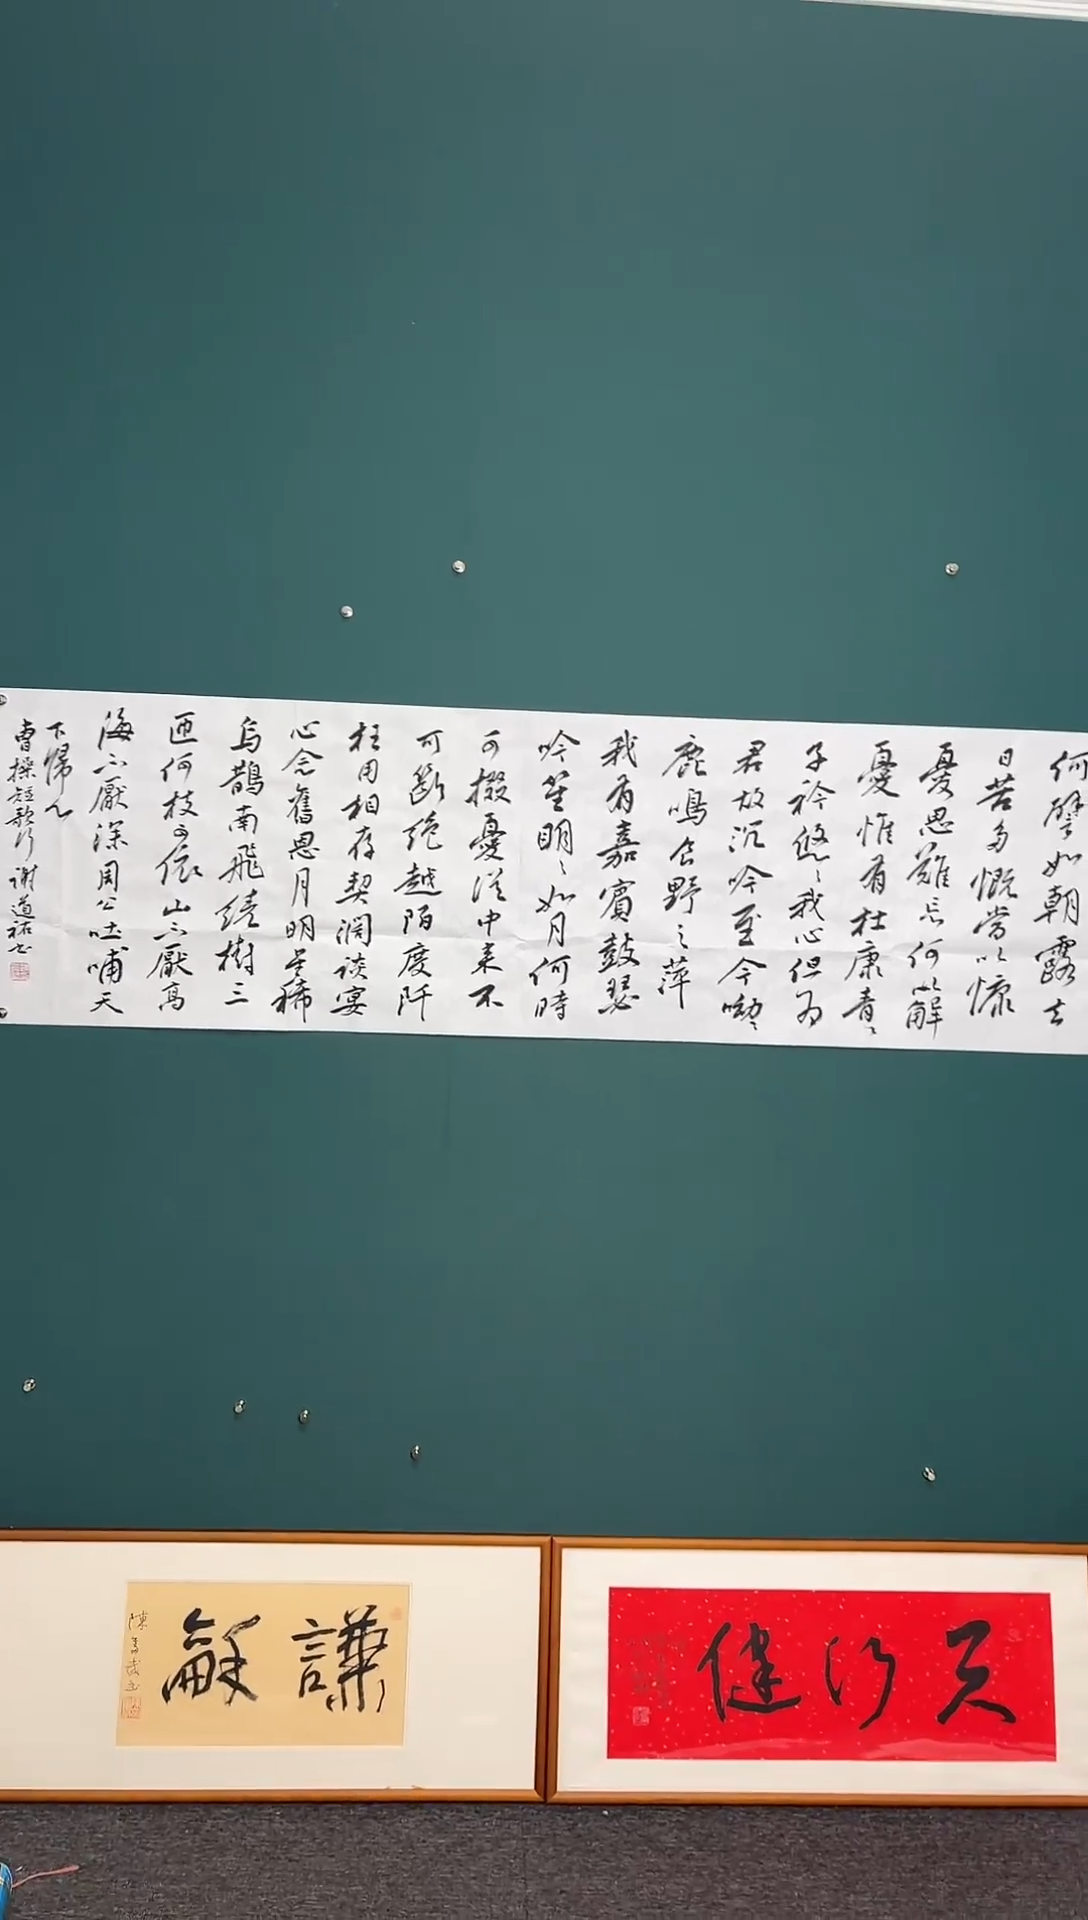 何譬如朝露去
日苦多慨當以慷
憂思難忘何以解
憂惟有杜康青〻
子衿悠〻我心但為
君故沉吟至今呦〻
鹿鳴食野之萍
我有嘉賓鼓瑟
吹笙明〻如月何時
可掇憂從中來不
可斷絕越陌度阡
枉用相存契闊談宴
心念舊恩月明星稀
烏鵲南飛繞樹三
匝何枝可依山不厭高
海不厭深周公吐哺天
下歸心
曹操短歌行 謝道祐書
謙龢
天行健